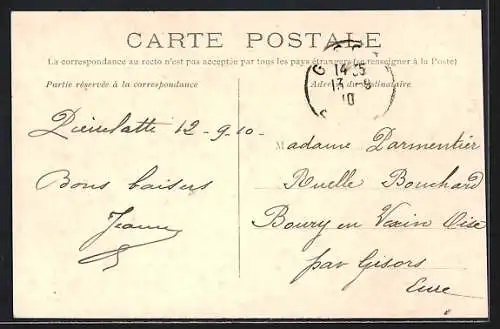 CARTE POSTALE
La correspondance au recto n'est pas acceptée par tous les pays étrangers (se renseigner à la Poste)
Partie réservée à la correspondance
Adresse du destinataire
14 35
13 - 9
10
Pierrelatte 12-9-10-
Bons baisers
Jeanne
Madame Parmentier
Ruelle Bouchard
Boury en Vexin Oise
par Gisors
Eure